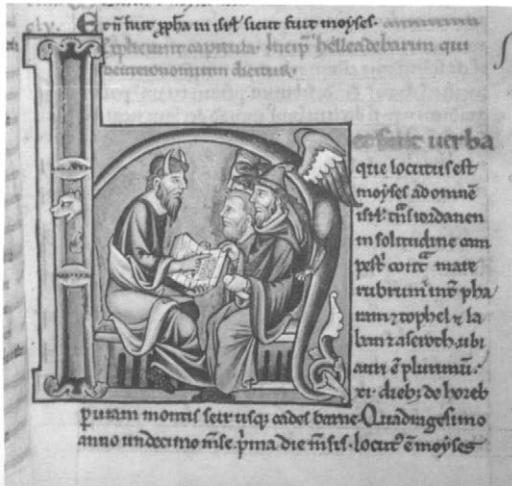 clv. Et ñ fuit ꝓpha in isrl̃ sicut fuit moyses.
Expliciunt capitula. Incip̃ helleadebarim qui
deuteronomium dicitur.
Hec sunt uerba
que locutus est
moyses ad omnẽ
isrl̃ tñs iordanen
in solitudine cam
pestĩ contã mare
rubrum int̃ pha
ram ⁊ tophel ⁊ la
ban ⁊ aseroth. ubi
auri ẽ plurimũ.
xi. dieb; de horeb
p uiam montis seir usq; cades barne. Quadragesimo
anno undecimo m̃se. p̃ma die m̃sis. locut᾽ ẽ moyses